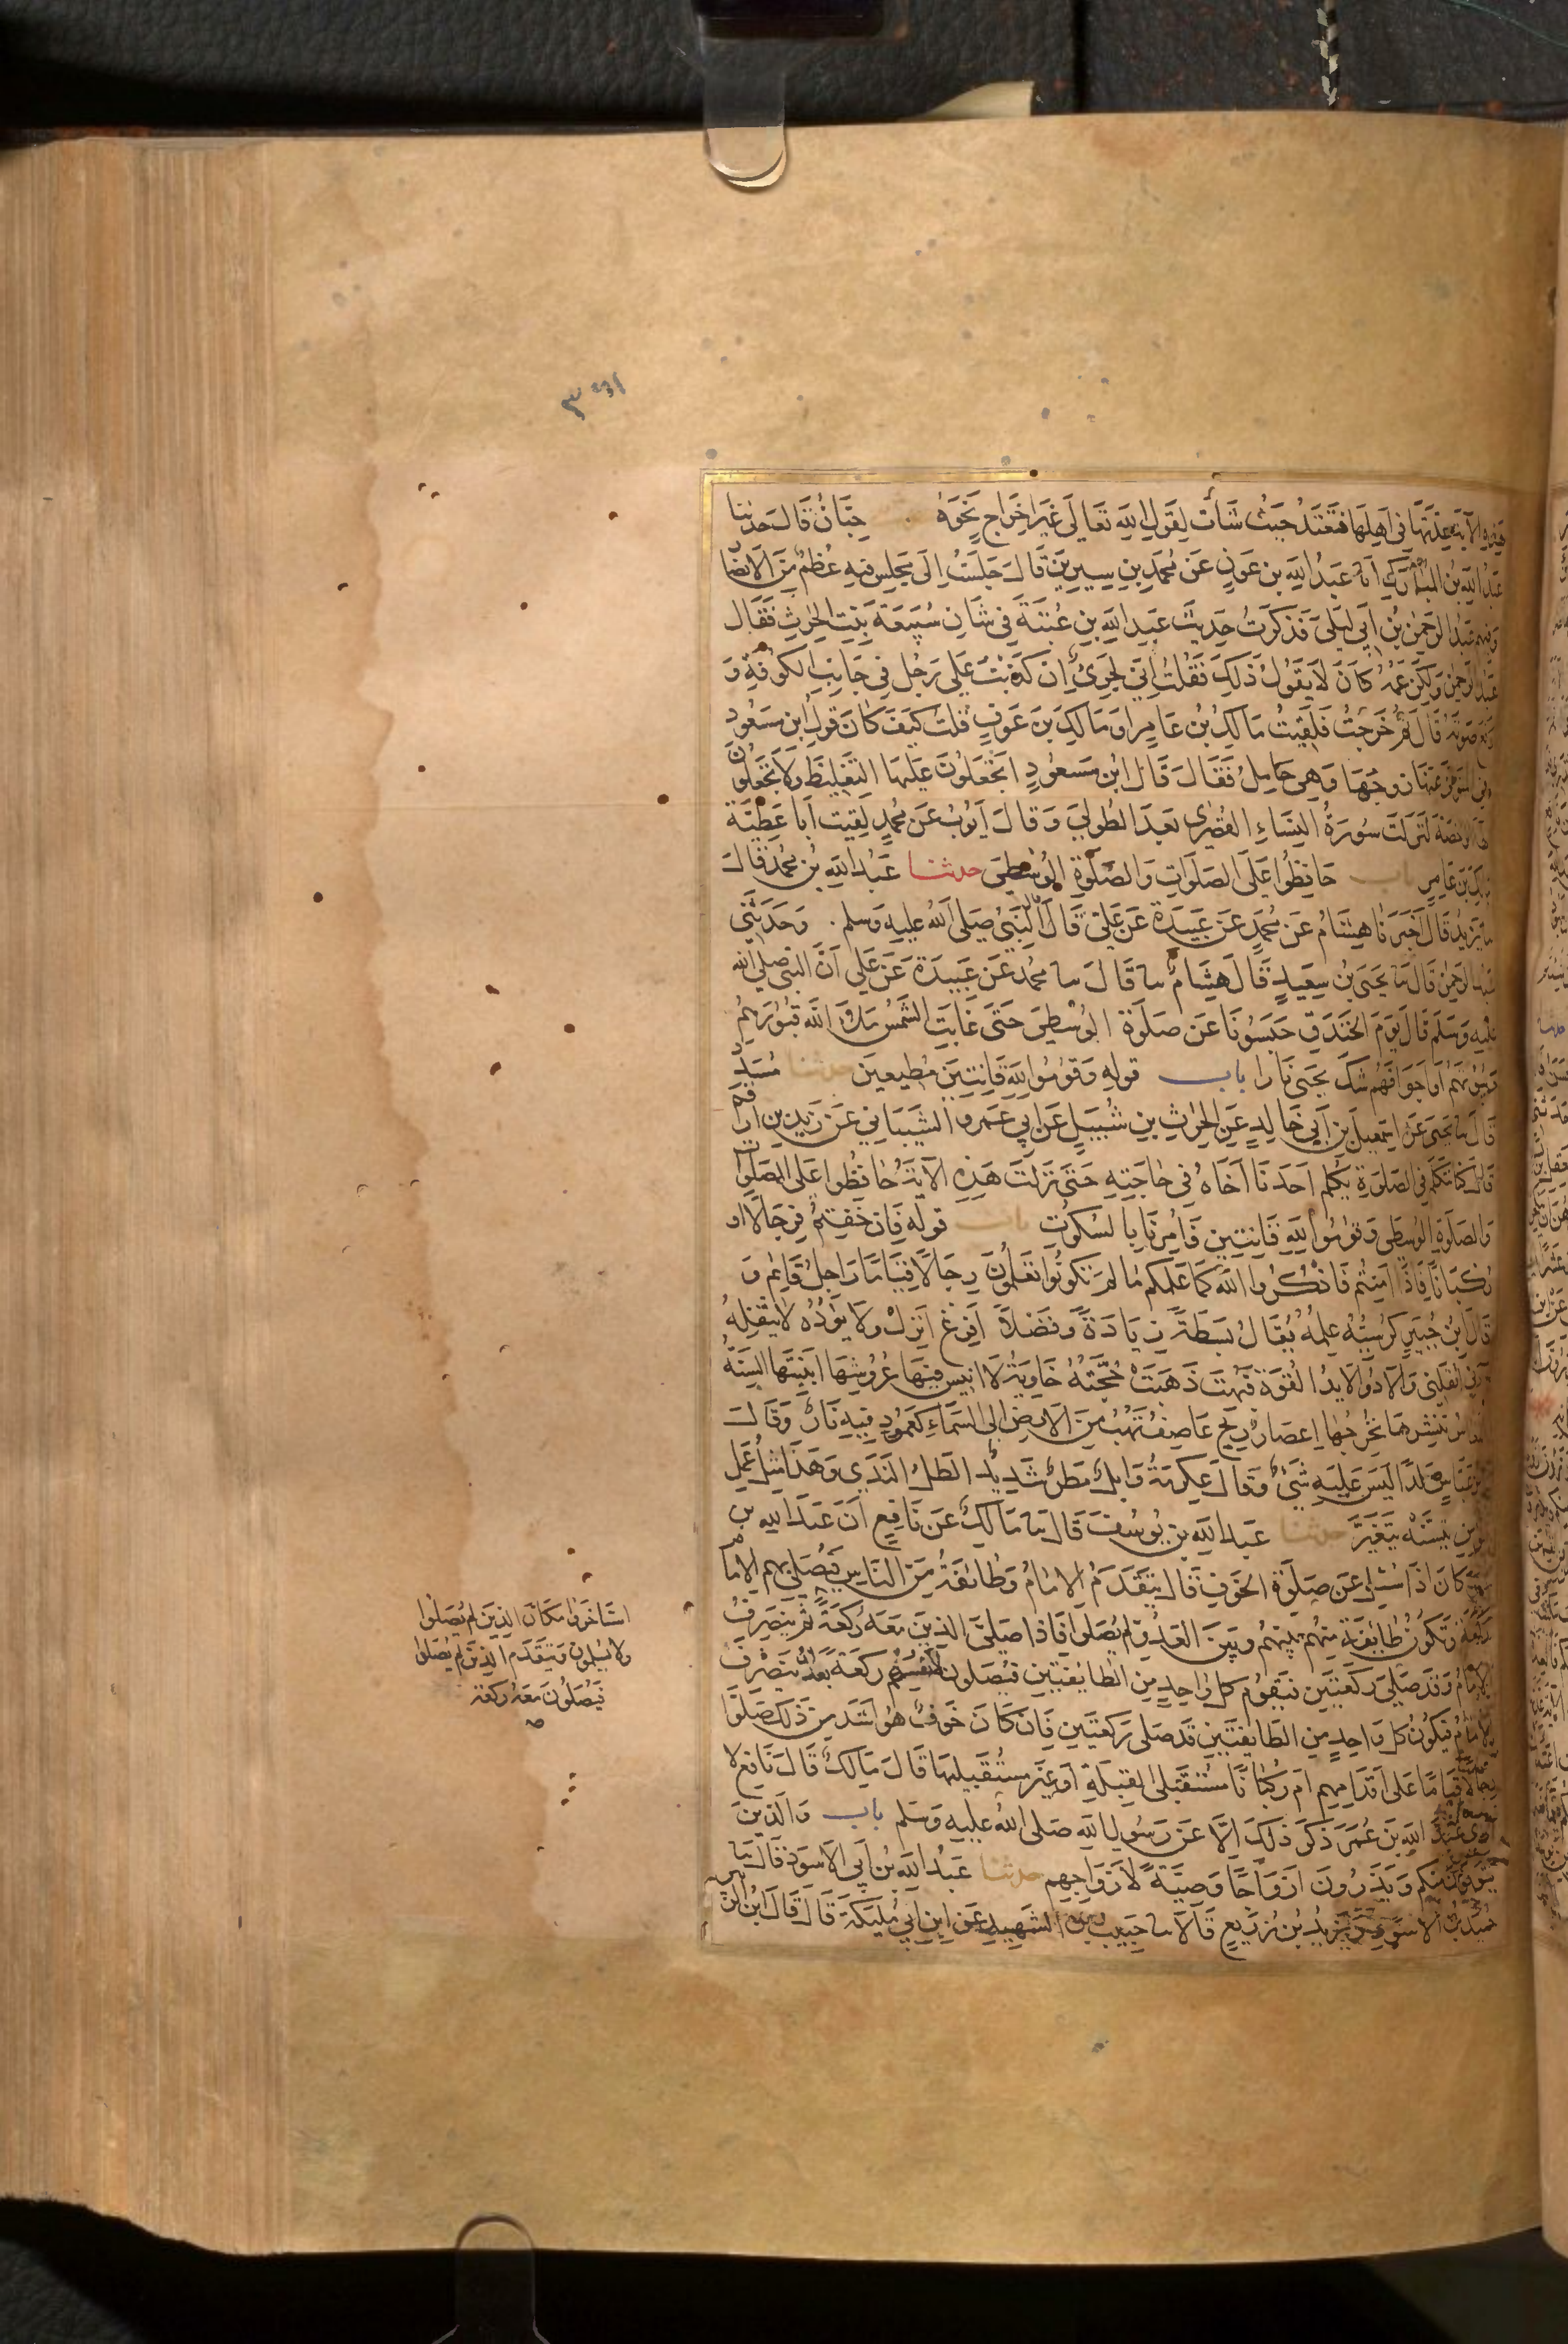 الآية عدتها في اهلها فتعتد حيث شآت لقول الله تعالى غير اخراج نحوه حبان قال حدثنا
عبد الله بن المبارك انا عبد الله بن عون عن محمد بن سيرين قال جلست الى مجلس فيه عظم من الانصار
وفيهم عبد الرحمن بن ابي ليلى فذكرت حديث عبد الله بن عتبة في شان سبيعة بنت الحرث فقال
عبد الرحمن ولكن عمه كان لا يقول ذلك فقلت اني لجرئ ان كذبت على رجل في جانب الكوفة و
رفع صوته قال ثم خرجت فلقيت مالك بن عامر او مالك بن عوف قلت كيف كان قول ابن مسعود
في المتوفى عنها زوجها وهي حامل فقال قال ابن مسعود اتجعلون عليها التغليظ ولا تجعلون
لها الرخصة لنزلت سورة النساء القصرى بعد الطولى وقال ايوب عن محمد لقيت ابا عطية
مالك بن عامر باب حافظوا على الصلوات والصلوة الوسطى حدثنا عبد الله بن محمد قال
نا يزيد قال اخبرنا هشام عن محمد عن عبيدة عن علي قال النبي صلى الله عليه وسلم. وحدثني
عبد الرحمن قال نا يحيى بن سعيد قال هشام نا قال نا محمد عن عبيدة عن علي ان النبي صلى الله
عليه وسلم قال يوم الخندق حبسونا عن صلوة الوسطى حتى غابت الشمس ملأ الله قبورهم
وبيوتهم او اجوافهم شك يحيى نارا باب قوله وقوموا لله قانتين مطيعين حدثنا مسدد
قال نا يحيى عن اسمعيل بن ابي خالد عن الحرث بن شبيل عن ابي عمرو الشيباني عن زيد بن ارقم
قال كنا نتكلم في الصلوة يكلم احدنا اخاه في حاجته حتى نزلت هذه الآية حافظوا على الصلوات
والصلوة الوسطى وقوموا لله قانتين فامرنا بالسكوت باب قوله فان خفتم فرجالا او
ركبانا فاذا امنتم فاذكروا الله كما علمكم ما لم تكونوا تعلمون رجالا قياما راجل قائم و
قال ابن جبير كرسيه علمه يقال بسطة زيادة وفضلا افرغ انزل ولا يؤده لا يثقله
آدني اثقلني والآد والايد القوة فبهت ذهبت حجته خاوية لا انيس فيها عروشها ابنيتها السنة
نعاس ننشرها نخرجها اعصار ريح عاصف تهب من الارض الى السماء كعمود فيه نار وقال
ابن عباس صلدا ليس عليه شئ وقال عكرمة وابل مطر شديد الطل الندى وهذا مثل عمل
المؤمن يتسنه يتغير حدثنا عبد الله بن يوسف قال نا مالك عن نافع ان عبد الله بن
عمر كان اذا سئل عن صلوة الخوف قال يتقدم الامام وطائفة من الناس فيصلي بهم الامام
ركعة وتكون طائفة منهم بينهم وبين العدو لم يصلوا فاذا صلى الذين معه ركعة ثم ينصرف
الامام وقد صلى ركعتين فيقوم كل واحد من الطايفتين فيصلون لانفسهم ركعة بعد ان ينصرف
الامام فيكون كل واحد من الطايفتين قد صلى ركعتين فان كان خوف هو اشد من ذلك صلوا
رجالا قياما على اقدامهم ام ركبانا مستقبلي القبلة او غير مستقبليها قال مالك قال نافع لا
ارى عبد الله بن عمر ذكر ذلك الا عن رسول الله صلى الله عليه وسلم باب والذين
يتوفون منكم ويذرون ازواجا وصية لازواجهم حدثنا عبد الله بن ابي الاسود قال نا
حميد بن الاسود ويزيد بن زريع قالا نا حبيب بن الشهيد عن ابن ابي مليكة قال قال ابن الزبير
استاخروا مكان الذين لم يصلوا
ولا يسلمون ويتقدم الذين لم يصلوا
فيصلون معه ركعة